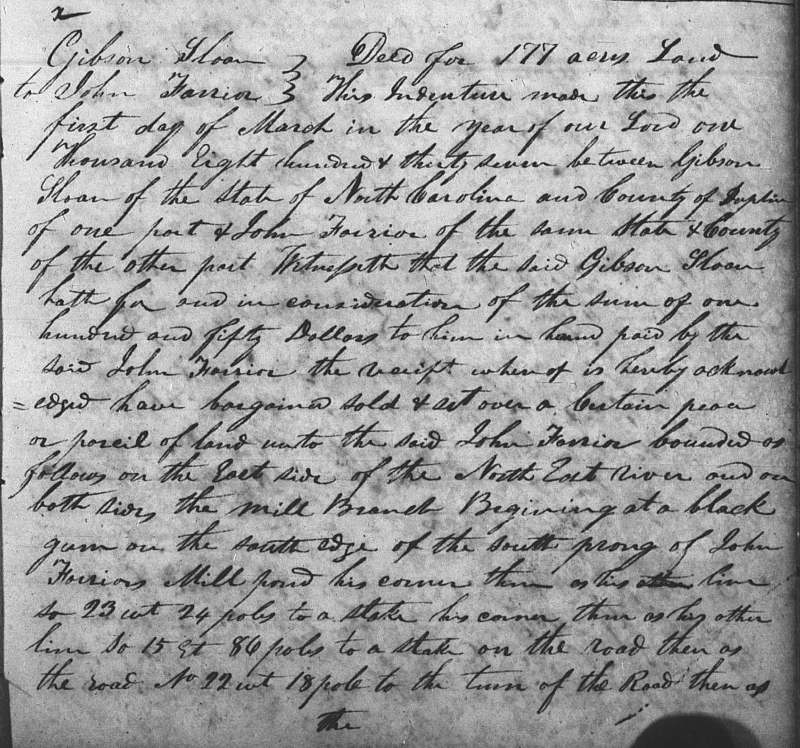 Gibson Sloan } Deed for 177 acres Land
to John Farrior } This Indenture made this the
first day of March in the year of our Lord one
thousand Eight hundred & thirty seven between Gibson
Sloan of the State of North Carolina and County of Duplin
of one part & John Farrior of the same State & County
of the other part Witnesseth that the said Gibson Sloan
hath for and in consideration of the sum of one
hundred and fifty Dollars to him in hand paid by the
said John Farrior the receipt whereof is hereby acknowl
=edged have bargained sold & set over a Certain peace
or parcil of land unto the said John Farrior bounded as
follows on the East side of the North East river and on
both sides the mill Branch Begining at a black
gum on the south edge of the south prong of John
Farriors Mill pond his corner then as his line
so 23 wt 24 poles to a stake his corner then as his other
line So 15 Et 86 poles to a stake on the road then as
the road No 22 wt 18 pole to the turn of the Road then as
the